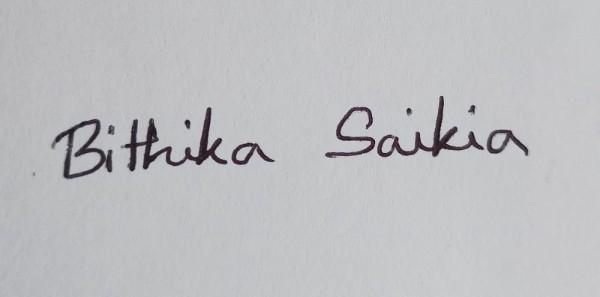 Bithika Saikia